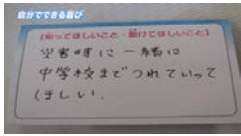 自分でできる喜び
【知ってほしいこと・助けてほしいこと】
災害時に一緒に
中学校までつれていって
ほしい。